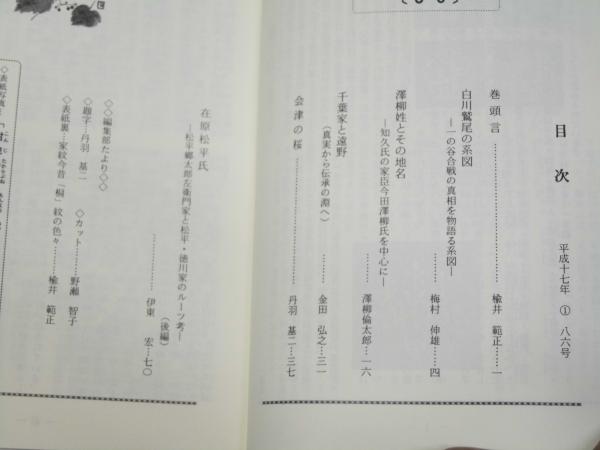 目次
平成十七年 ① 八六号
巻頭言………………楡井 範正…一
白川鷲尾の系図
―一の谷合戦の真相を物語る系図―
………梅村 伸雄…四
澤柳姓とその地名
―知久氏の家臣今田澤柳氏を中心に―
………澤柳倫太郎…一六
千葉家と遠野
(真実から伝承の淵へ)………金田 弘之…三一
会津の桜………………丹羽 基二…三七
在原松平氏
―松平郷太郎左衛門家と松平・徳川家のルーツ考―
(後編)
………伊東 宏…七〇
◇◇編集部たより◇◇
◇題字…丹羽 基二 ◇カット………野瀬 智子
◇表紙裏…家紋今昔「桐」紋の色々………楡井 範正
◇表紙写真